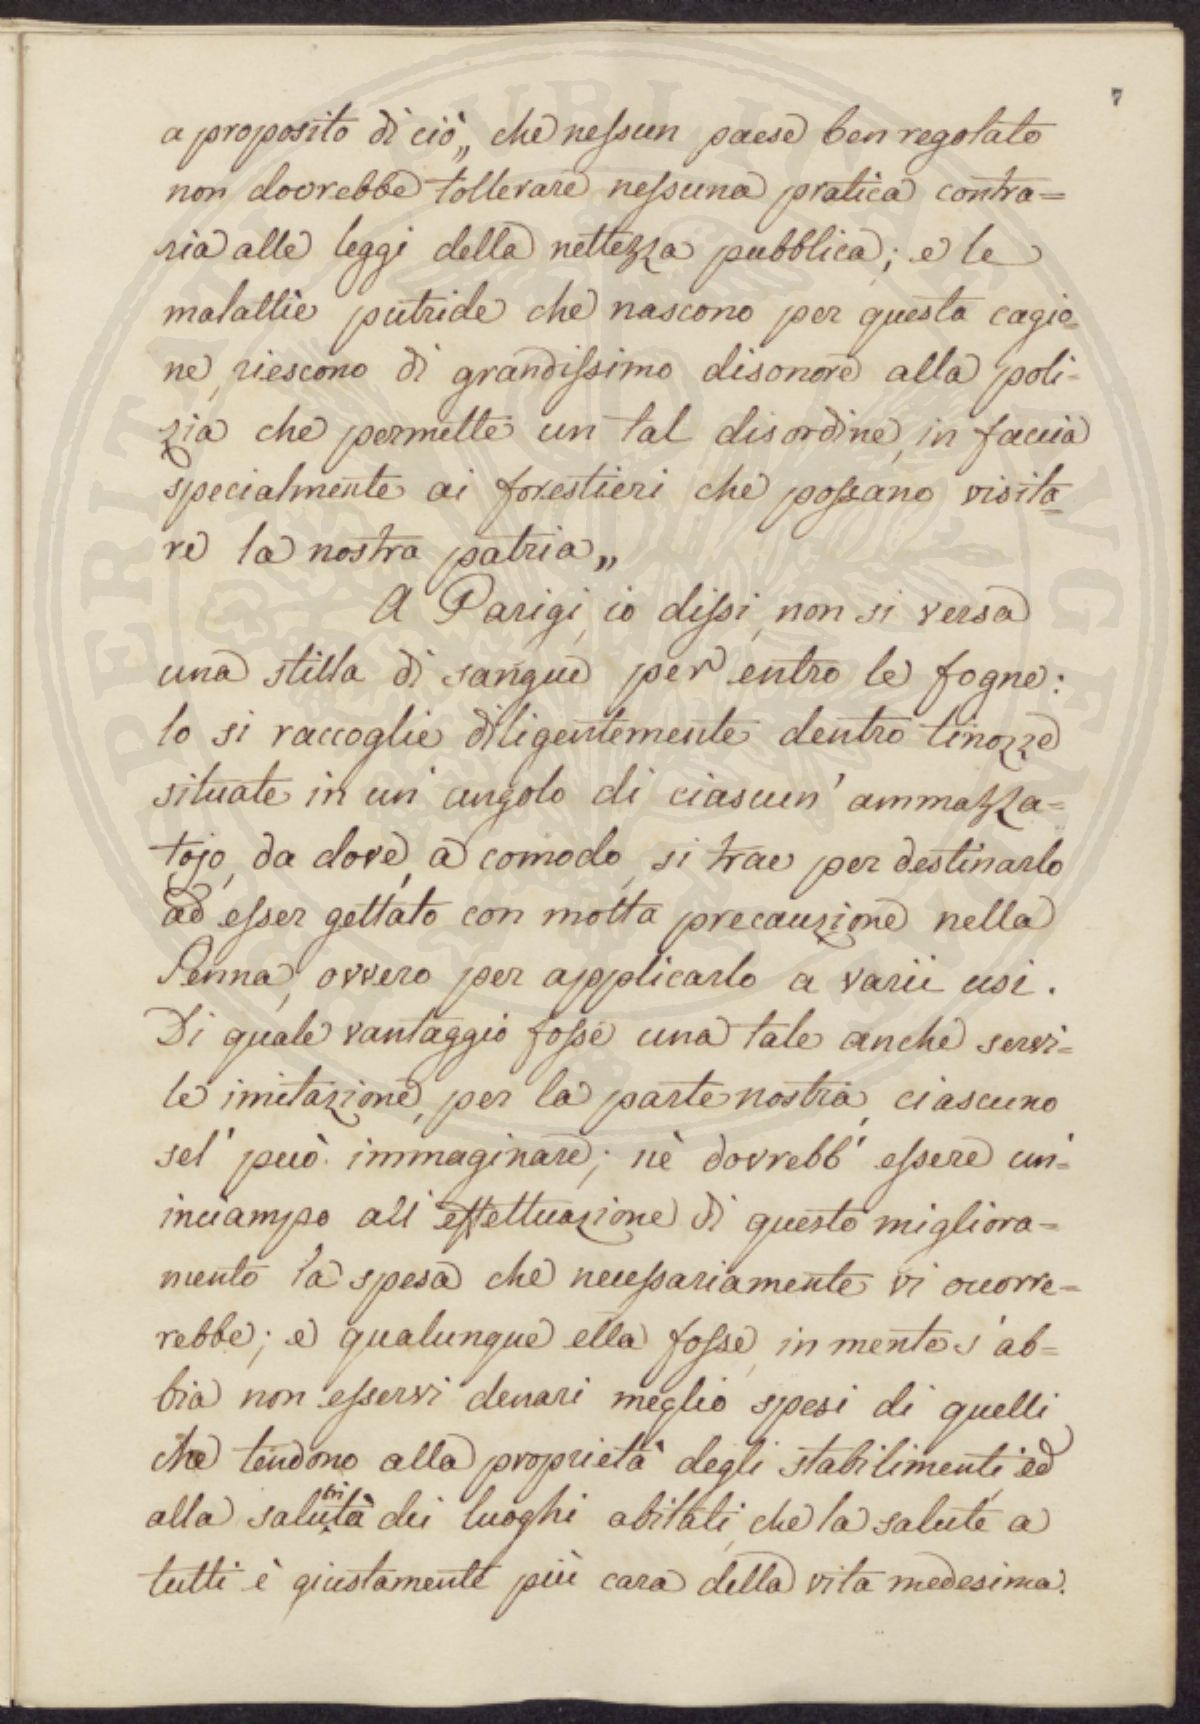 7
a proposito di ciò „ che nessun paese ben regolato
non dovrebbe tollerare nessuna pratica contra=
ria alle leggi della nettezza pubblica; e le
malattie putride che nascono per questa cagio=
ne, riescono di grandissimo disonore alla poli-
zia che permette un tal disordine, in faccia
specialmente ai forestieri che possano visita=
re la nostra patria „
A Parigi, io dissi, non si versa
una stilla di sangue per entro le fogne:
lo si raccoglie diligentemente dentro tinozze
situate in un' angolo di ciascun' ammazza=
tojo, da dove, a comodo, si trae per destinarlo
ad esser gettato con molta precauzione nella
Senna, ovvero per applicarlo a varii usi.
Di quale vantaggio fosse una tale anche servi=
le imitazione, per la parte nostra, ciascuno
sel' può immaginare; nè dovrebb' essere un'
inciampo all' effettuazione di questo migliora=
mento la spesa che necessariamente vi occorre=
rebbe; e qualunque ella fosse, in mente s'ab=
bia non esservi denari meglio spesi di quelli
che tendono alla proprietà degli stabilimenti, ed
alla salubrità dei luoghi abitati, che la salute a
tutti è giustamente più cara della vita medesima.